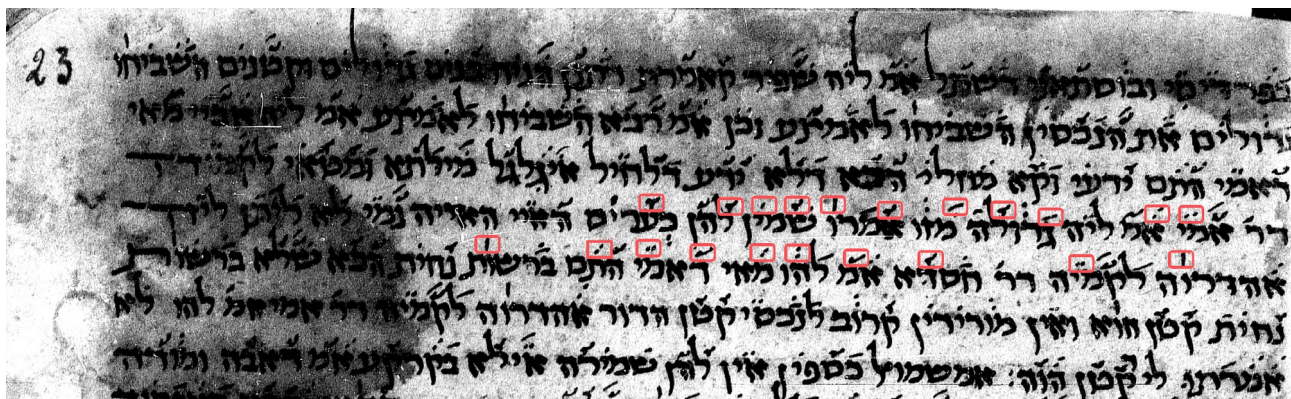 23
בפרדיסי ובוסתאני דשתל אמ ליה שפיר קאמרת דתנן הניח בנים גדולים וקטנים השביחו
גדולים את הנכסין השביחו לאמצע וכן אמ רבא השביחו לאמצע אמ ליה אביי מאי
דאמי התם ידעי וקא מחלי הכא דלא ידע דלחיל איגלגל מילתא ומטאי לקמיה
דר אמי אמ ליה גדולה מזו אמרו שמין להן כעריס האיי נמי לא ליתן ליה
אהדרוה לקמיה דר חסדיא אמ להו מאי דאמי התם ברשות נחית הכא שלא ברשות
נחית קטן הוא ואין מורידין קרוב לנכסי קטן הדור אהדרוה לקמיה דר אמי אמ להו לא
אמרתון לי קטן הוה: אמ שמואל כספין אין להן שמירה אילא בקרקע אמ ראבה ומודיה